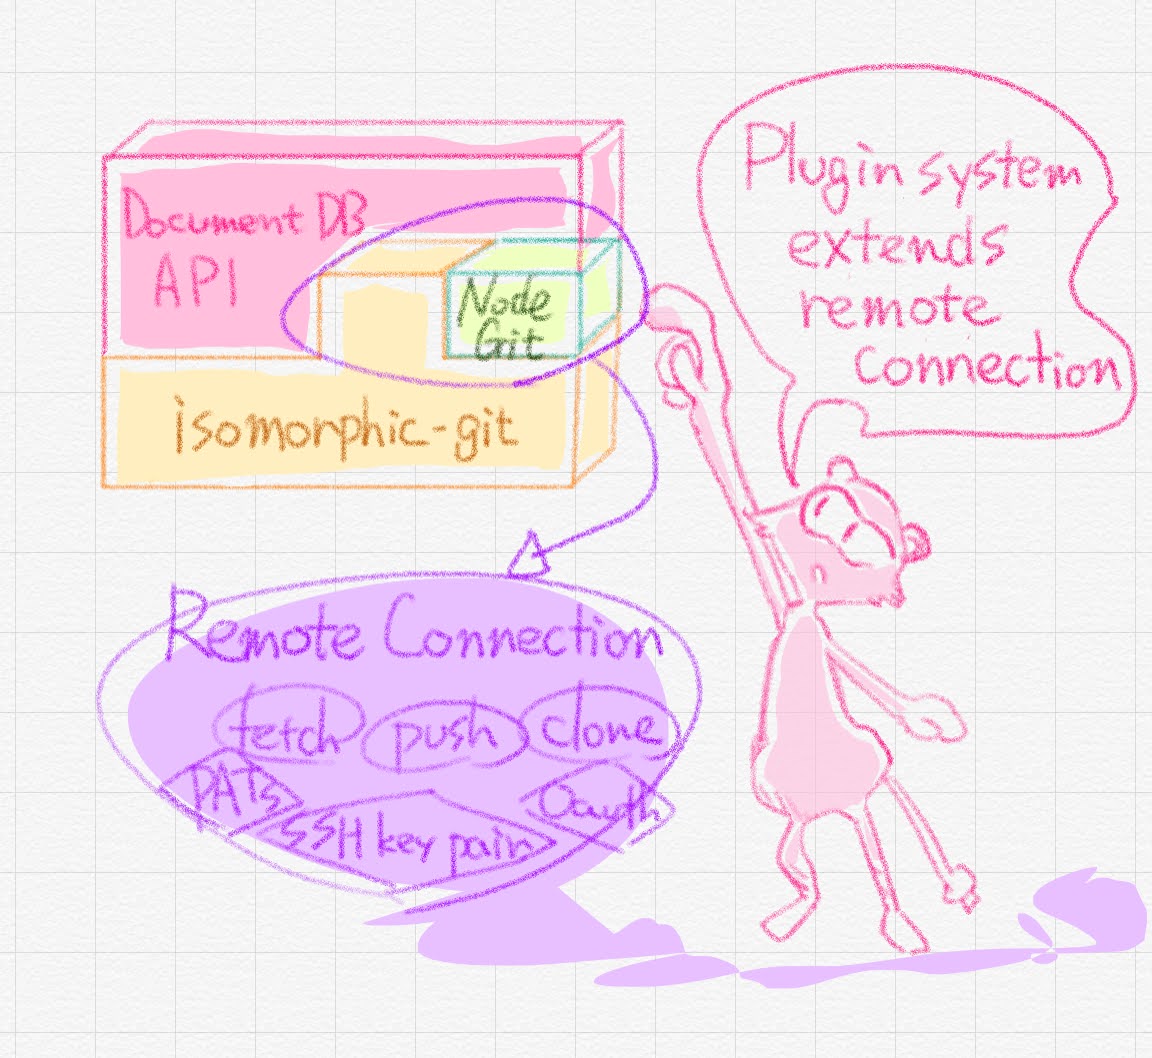 Document DB
API
Node
Git
isomorphic-git
Plugin system
extends
remote
connection
Remote Connection
fetch push clone
PATs
SSH key pair
Oauth